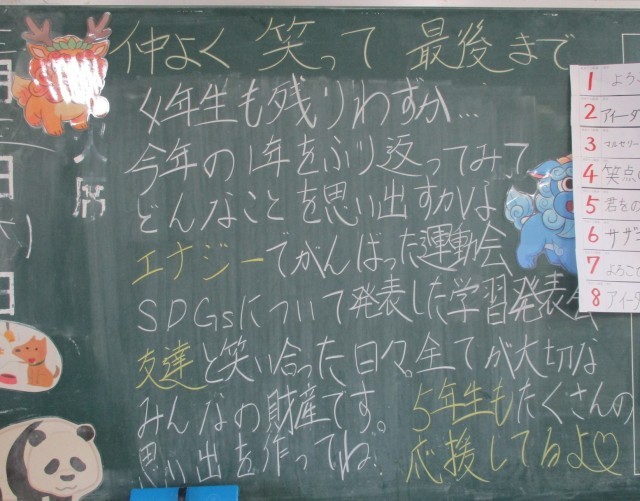 仲よく 笑って 最後まで
4年生も残りわずか…
今年の1年をふり返ってみて
どんなことを思い出すかな
エナジーでがんばった運動会
SDGsについて発表した学習発表会
友達と笑い合った日々。全てが大切な
みんなの財産です。5年生もたくさんの
思い出を作ってね。応援してるよ♡
月
日
1 よう
2 アイーダ
3 マルセリー
4 笑点の
5 君をの
6 サザエ
7 よろこ
8 アイーダ